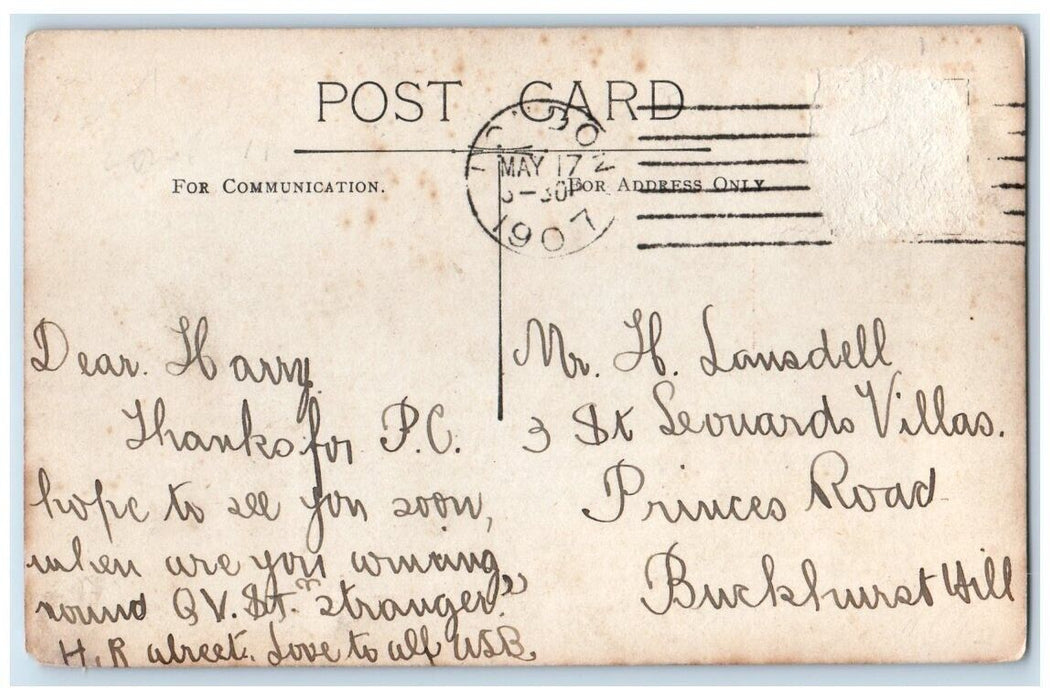 POST CARD
FOR COMMUNICATION.
FOR ADDRESS ONLY
MAY 17
1907
Dear. Harry
Thanks for P.C.
hope to see you soon,
when are you coming
round Q V. St. "stranger"
H. R street. Love to all
Mr. H. Lansdell
3 St Leonards Villas.
Princes Road
Buckhurst Hill